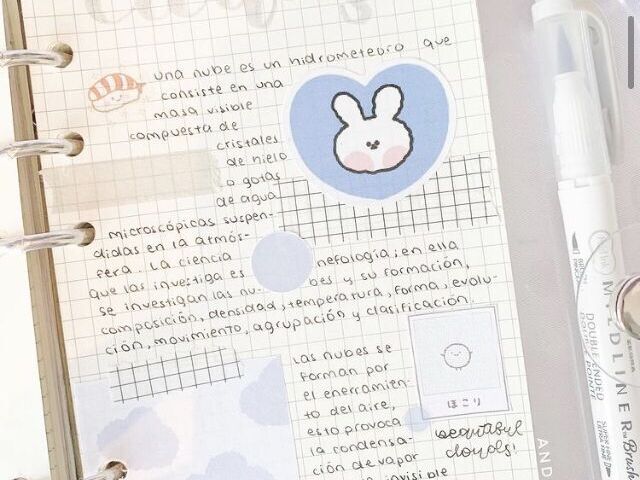 una nube es un hidrometeoro que
consiste en una
masa visible
compuesta de
cristales
de hielo
o gotas
de agua
microscópicas suspen-
didas en la atmós-
fera. La ciencia
que las investiga es nefología; en ella
se investigan las nu- bes y su formación,
composición, densidad, temperatura, forma, evolu-
ción, movimiento, agrupación y clasificación.
Las nubes se
forman por
el enerramien-
to del aire,
esto provoca
la rondensa-
ción de vapor
invisible
ほこり
beautiful
clouds!
MILDLINER Brush
DOUBLE ANDED
AND